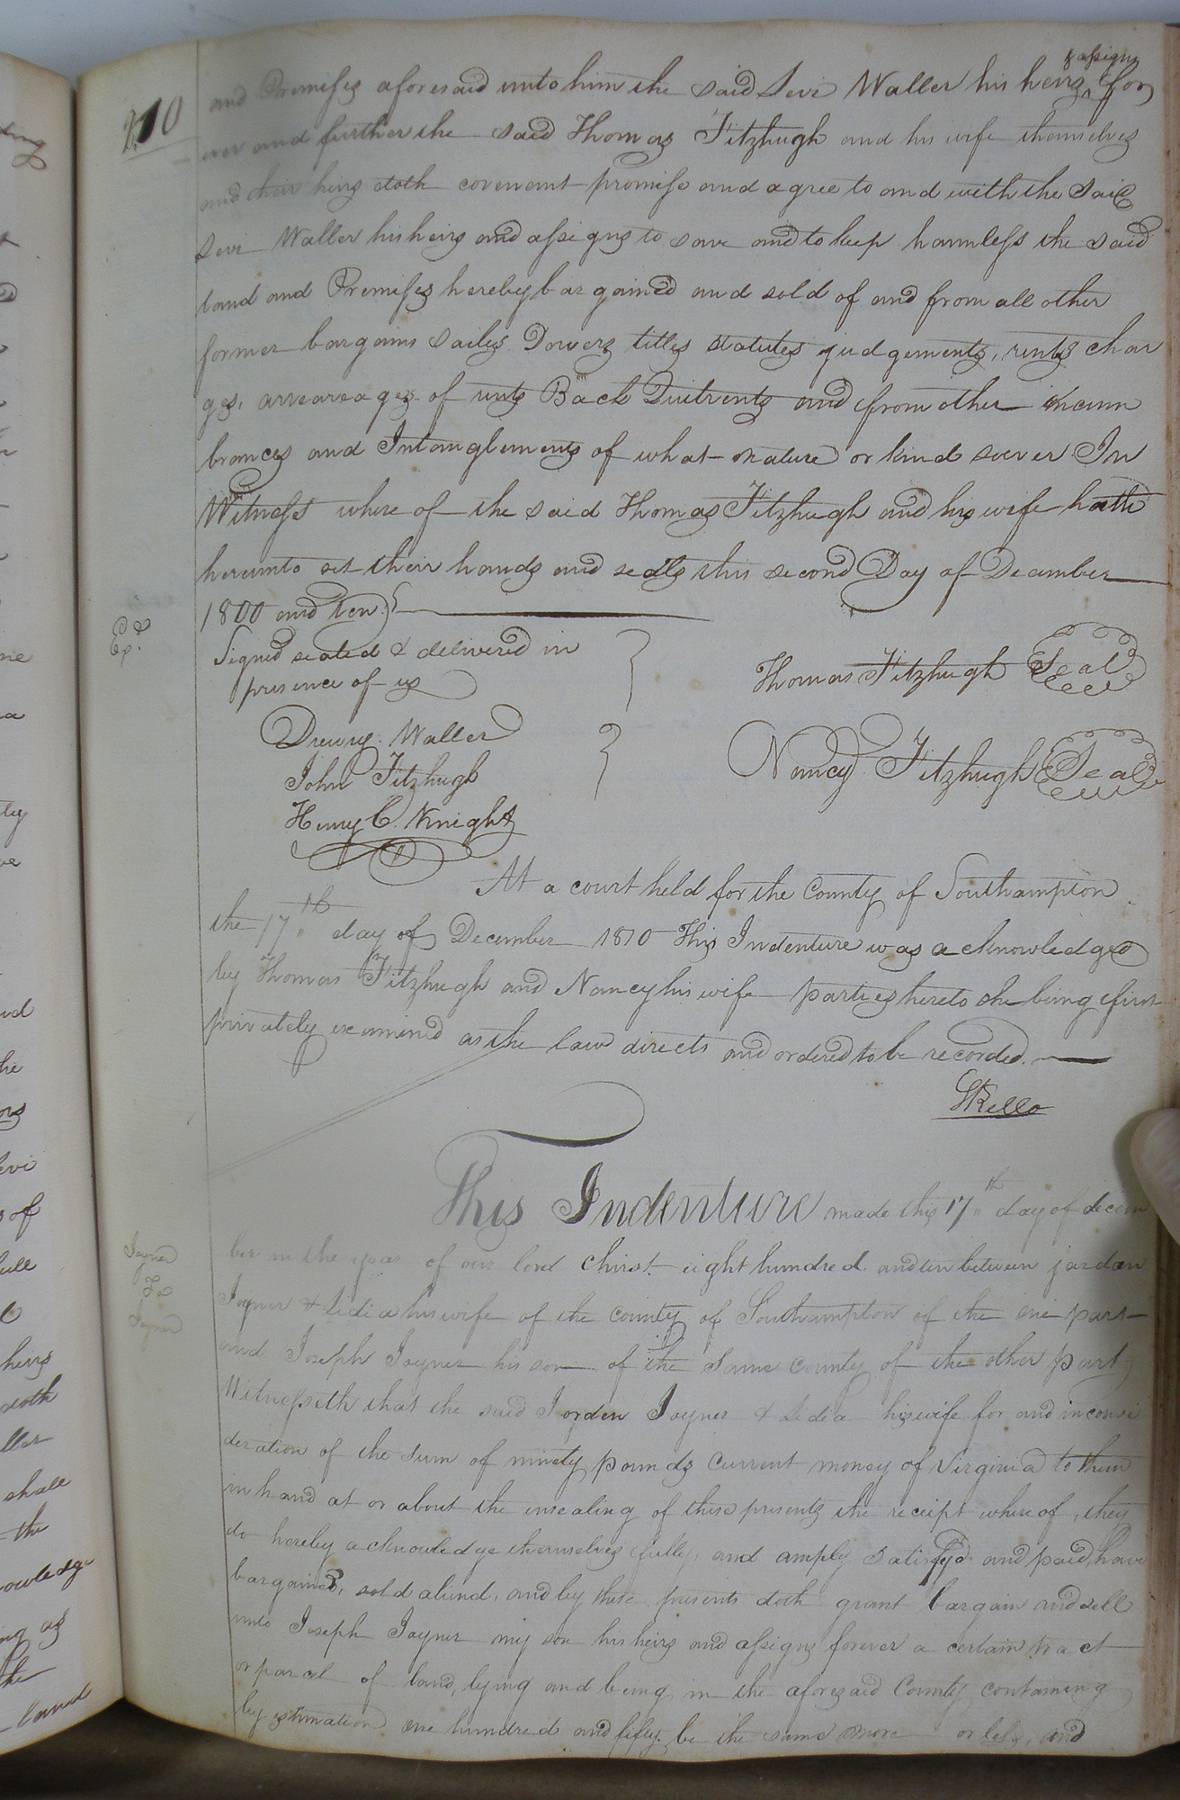 210
and Premises aforesaid unto him the said Levi Waller his heirs & assigns for
ever and further the said Thomas Fitzhugh and his wife themselves
and their heirs doth covenant promise and agree to and with the said
Levi Waller his heirs and assigns to save and to keep harmless the said
land and Premises hereby bargained and sold of and from all other
former bargains sailes Dowers titles statutes judgements, rents char
ges, arrearages of rents Back Quitrents and from other incum
brances and Intanglements of what nature or kind soever In
Witness where of the said Thomas Fitzhugh and his wife hath
hereunto set their hands and seals this second Day of December
1800 and ten
Signed sealed & delivered in
presence of us
Thomas Fitzhugh Seal
Drewry Waller
John Fitzhugh
Nancy Fitzhugh Seal
Henry C. Knight
Exd
At a court held for the County of Southampton
the 17th day of December 1810 This Indenture was acknowledged
by Thomas Fitzhugh and Nancy his wife parties hereto she being first
privately examined as the law directs and ordered to be recorded.
SKello
This Indenture made this 17th day of decem
Joyner
To
Joyner
ber in the year of our lord Christ eight hundred and ten between jordan
Joyner & Lidia his wife of the county of Southampton of the one part
and Joseph Joyner his son of the Same County of the other part
Witnesseth that the said Jorden Joyner & Lidia his wife for and in consi
deration of the sum of ninety pounds Current money of Virginia to them
in hand at or about the insealing of these presents the receipt where of, they
do hereby acknowledge themselves fully, and amply satisfyd and paid, have
bargained, sold aliend, and by these presents doth grant bargain and sell
unto Joseph Joyner my son his heirs and assigns forever a certain tract
or parcel of land, lying and being in the aforesaid County containing
by estimation one hundred and fifty be the same more or less, and